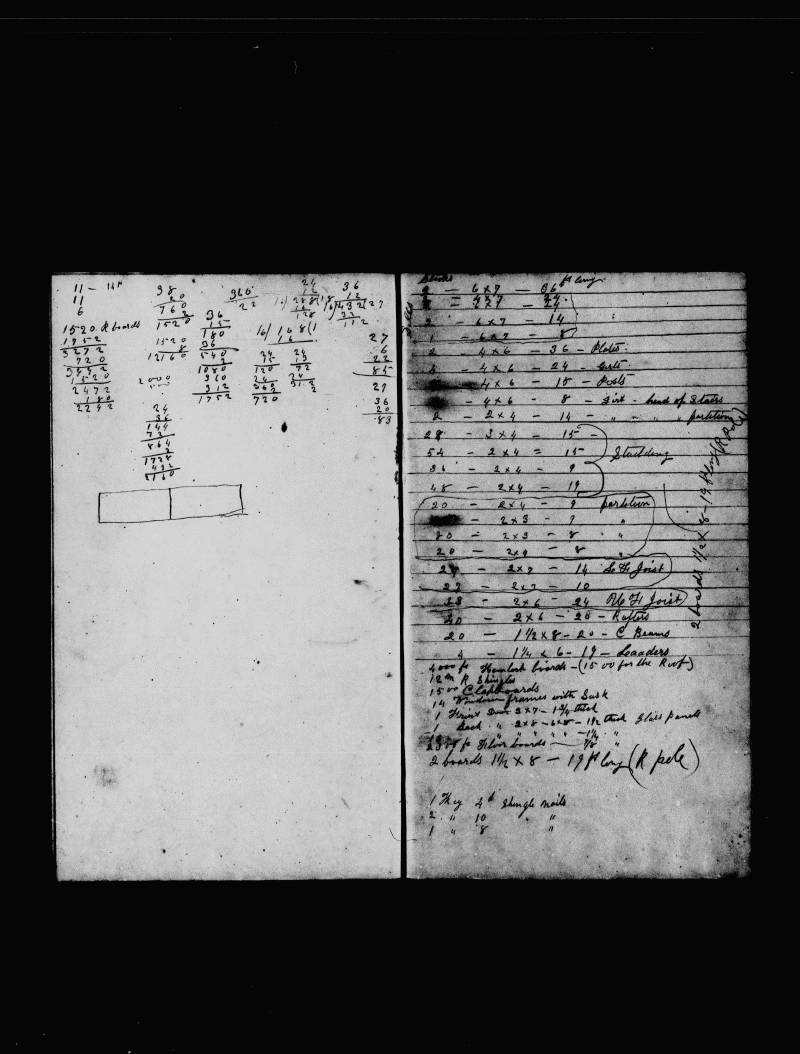 11 -
11
6
1520 R boards
1952
3272
720
3892
1520
2472
180
2292
98
20
760
2
1520
1520
8
12160
2000
24
36
144
72
864
2
1728
432
2160
360
22
36
15
180
36
540
2
1080
360
312
1752
16/ 168(1
16
24
15
120
24
360
2
720
24
13
72
24
312
2
24
12
16) 288(18
16
128
36
12
16)432(27
32
112
27
6
22
85
27
36
20
83
ft long
6 x 7 - 36
4 x 7 24
2 x 7 - 24
2 - 6 x 7 - 14 "
1 - 6 x 7 - 8
2 - 4 x 6 - 36 - Plates
4 - 4 x 6 - 24 - Girts
4 x 6 - 15 - Posts
4 x 6 - 8 - Girt - head of Stairs
2 - 2 x 4 - 14 - " " " partition
28 - 3 x 4 - 15 -
54 - 2 x 4 = 15 Studding
36 - 2 x 4 - 9
48 - 2 x 4 - 19
20 - 2 x 4 - 9 partition
2 x 3 - 9 "
80 - 2 x 3 - 8 "
20 - 2 x 4 - 8 "
28 - 2 x 7 - 14 L Fl Joist
22 - 2 x 7 - 10
28 - 2 x 6 - 24 U Fl Joist
40 - 2 x 6 - 20 - Rafters
20 - 1 1/2 x 8 - 20 - C Beams
4 - 1 1/4 x 6 - 19 - Leaders
4000 ft Hemlock boards - (1500 for the Roof)
12 M R Shingles
1500 Clapboards
14 Window frames with Sash
1 Front Door 3 x 7 - 1 3/4 thick
1 Back " 2 x 8 - 6 x 8 - 1 1/2 thick Glass panels
" " " " " - 1 1/4 "
2300 ft Floor boards - 7/8 "
2 boards 1 1/2 x 8 - 19 ft long (R pole)
1 Keg 4d Shingle nails
2 " 10 "
1 " 8 "
2 boards 1 1/2 x 8 - 19 ft long (R Pole)